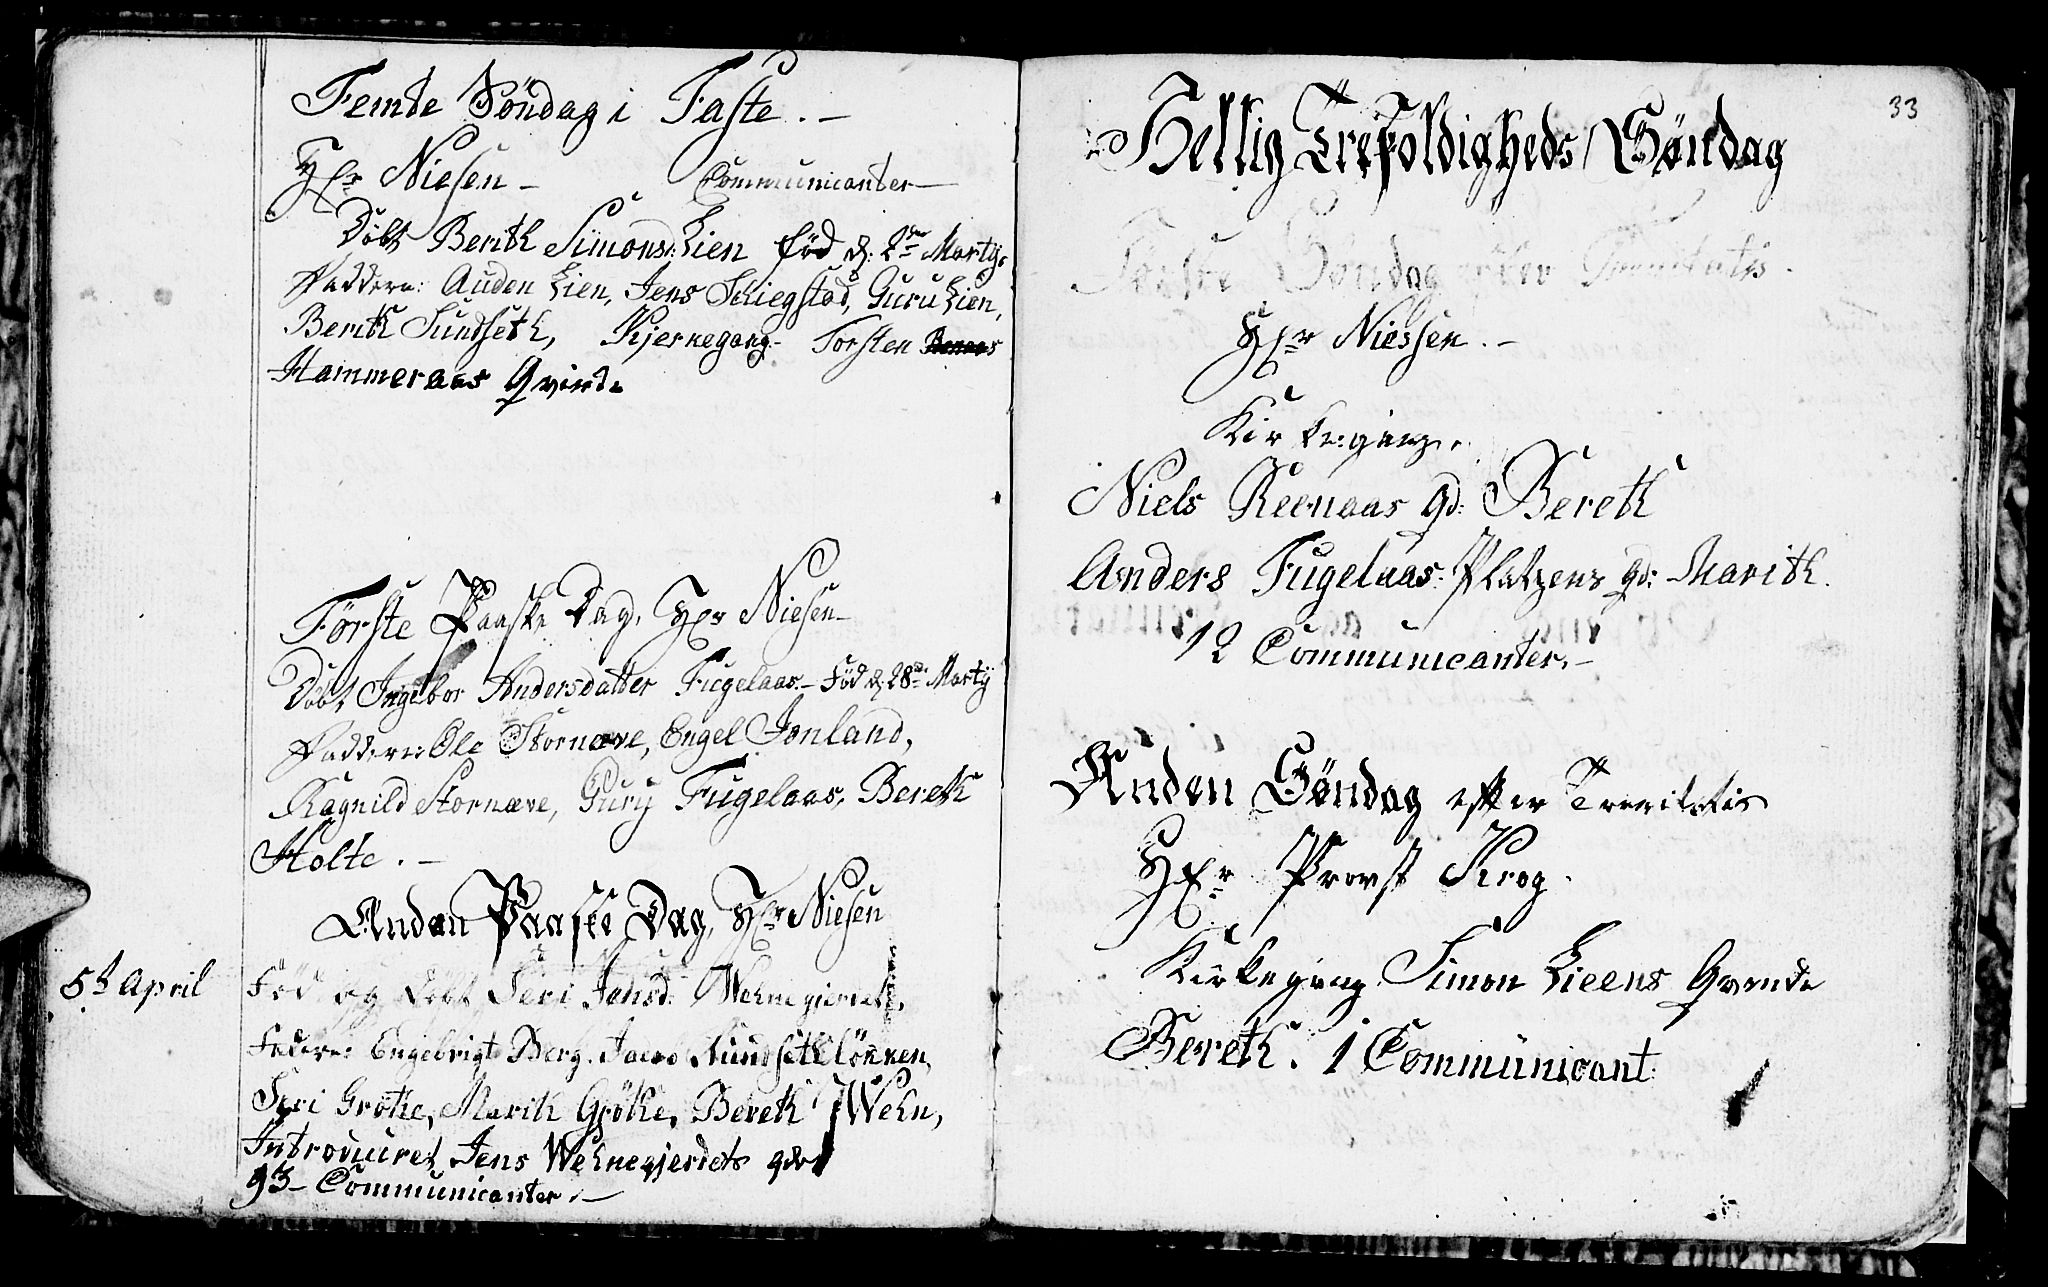 Femte Söndag i Faste. –
Hr Niesen – Communicanter –
Döbt Berith Simonsd: Lien föd d: 2de Martÿ.
Faddere: Auden Lien, Jens Schiegstad, Guru Lien,
Berith Sundseth, Kjernegang – Torsten
Hammeraas Qvinde
Förste Paaske Dag, Hr Niesen –
Döbt Ingebor Andersdatter Fugelaas – Föd d. 28de Martÿ
Faddere: Ole Stornæve, Engel Jonland,
Ragnild Stornæve, Gurÿ Fugelaas, Bereth
Holte. –
Anden Paaske Dag, Hr Niesen
5t April
Föd og Döbt Seri Jensd: Wehnegierdet,
Fadere: Engebrigt Berg, Jacob Sundsethlökken,
Seri Gröthe, Marith Gröthe, Bereth Wehn,
Introduceret Jens Wehnegjerdets qde
93 – Communicanter. –
33
Hellig Trefoldigheds Søndag
Første Söndag efter Trinitatis.
Hr Niessen. –
Kirkegang.
Niels Reenaas qd: Bereth
Anders Fugelaas Platzens qd: Marith.
12 Communicanter. –
Anden Søndag efter Trinitatis
Hr Provst Krog.
Kirkegang Simon Lieens Qvinde
Bereth. 1 Communicant.